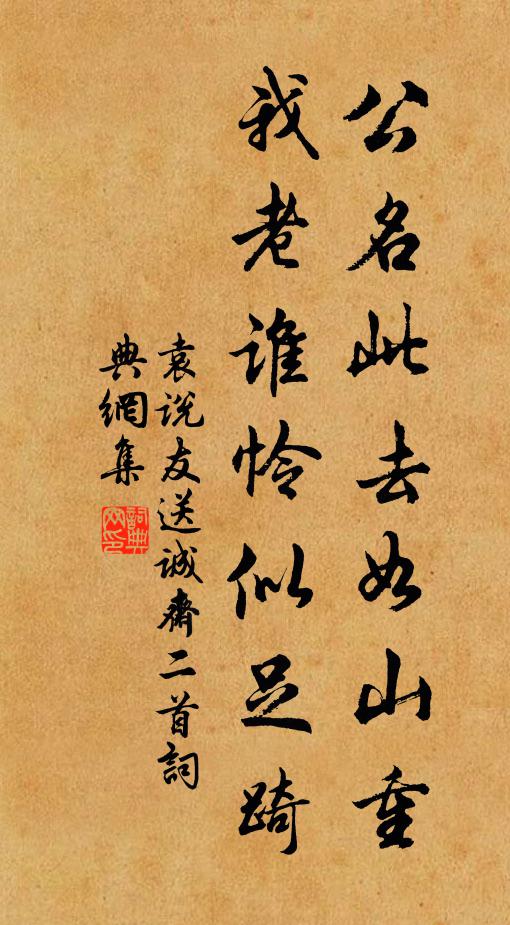 公名此去如山重
我老谁怜似足踦
袁说友送诚斋二首詞
典網集
詞典網印